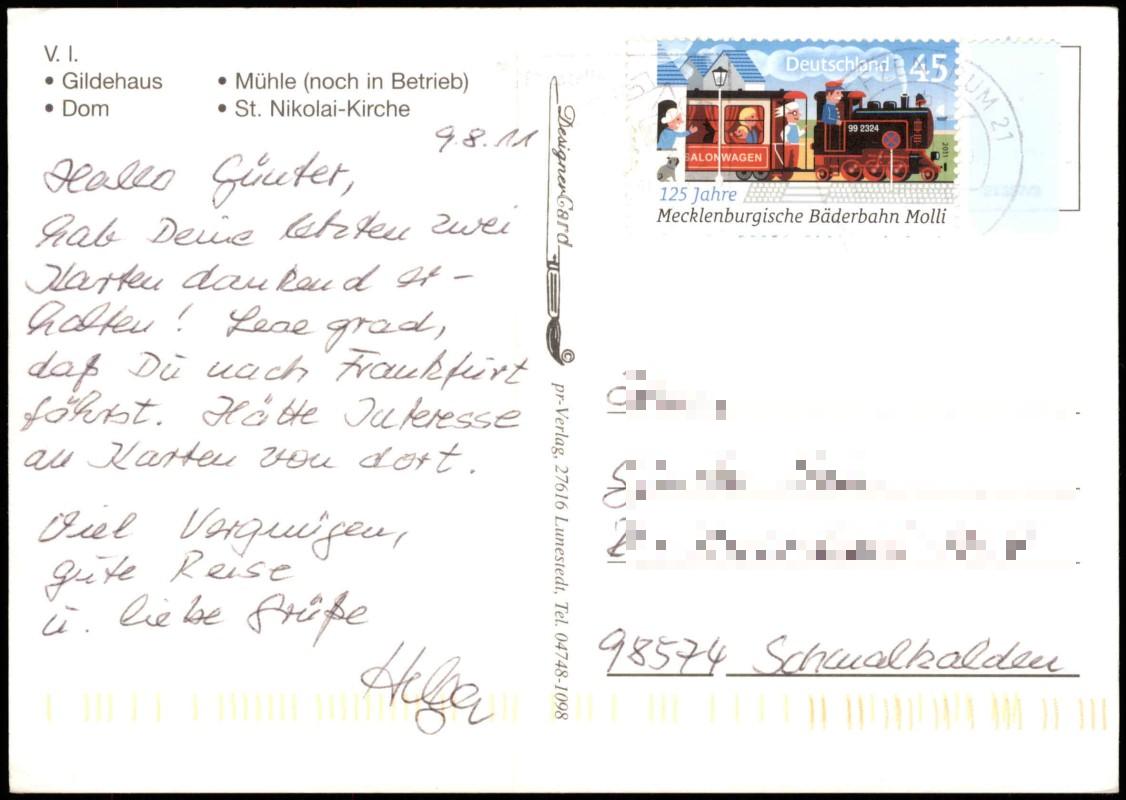 V. l.
• Gildehaus • Mühle (noch in Betrieb)
• Dom • St. Nikolai-Kirche
9.8.11
Hallo Günter,
hab Deine letzten zwei
Karten dankend er-
halten! Lese grad,
daß Du nach Frankfurt
fährst. Hätte Interesse
an Karten von dort.
Viel Vergnügen,
gute Reise
u. liebe Grüße
Helga
DesignerCard ©
pr-Verlag, 27616 Lunestedt, Tel. 04748-1098
Deutschland 45
99 2324
SALONWAGEN
2011
125 Jahre
Mecklenburgische Bäderbahn Molli
21
98574 Schmalkalden